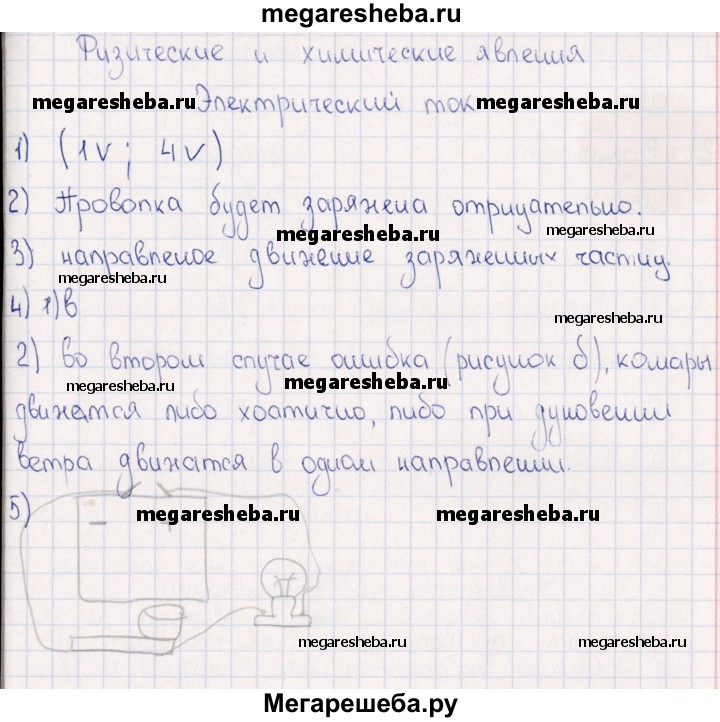 megaresheba.ru
Физические и химические явления
megaresheba.ru Электрический ток megaresheba.ru
1) (1v; 4v)
2) Проволка будет заряжена отрицательно.
megaresheba.ru megaresheba.ru
3) направленое движение заряженных частиц.
megaresheba.ru
4) 1) в
megaresheba.ru
2) во втором случае ошибка (рисунок б), комары
megaresheba.ru megaresheba.ru
движатся либо хоатично, либо при дуновении
ветра движатся в одном направлении.
5)
megaresheba.ru megaresheba.ru
- -
megaresheba.ru megaresheba.ru
Мегарешеба.ру